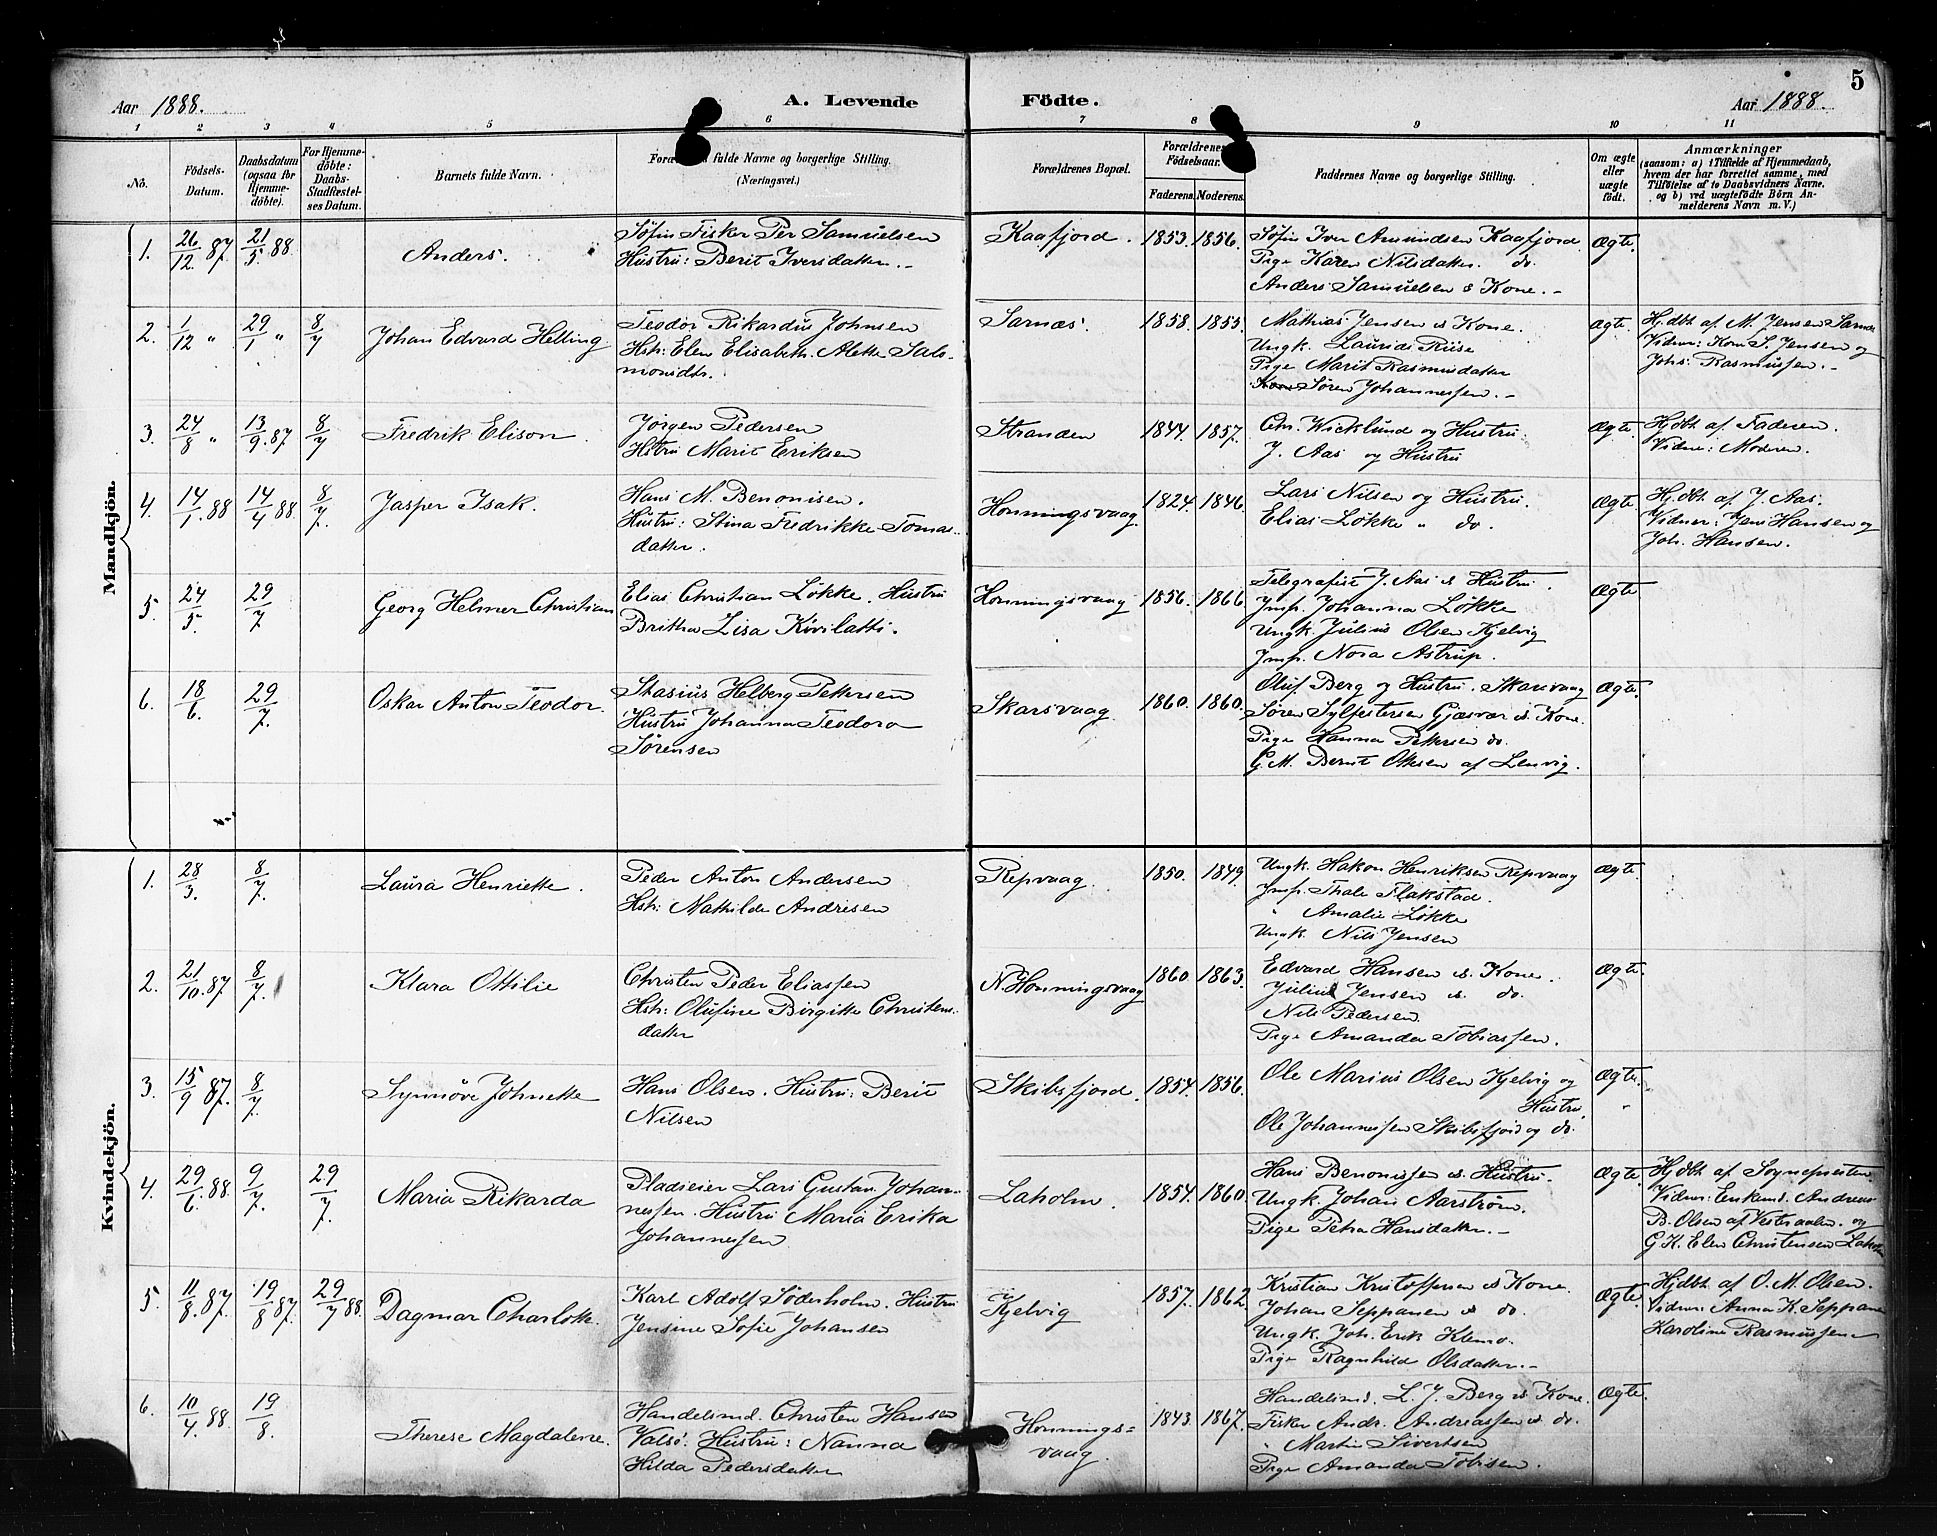 5
Aar 1888.
A. Levende Födte.
Aar 1888.
1 2 3 4 5 6 7 8 9 10 11
No.
Födsels-Datum.
Daabsdatum (ogsaa for Hjemmedöbte).
For Hjemmedöbte: Daabs-Stadfæstelses Datum.
Barnets fulde Navn.
fulde Navne og borgerlige Stilling.
(Næringsvei.)
Forældrenes Bopæl.
Forældrenes Födselsaar.
Faderens. Moderens.
Faddernes Navne og borgerlige Stilling.
Om ægte eller uægte födt.
Anmærkninger
(saasom: a) i Tilfælde af Hjemmedaab, hvem der har forrettet samme, med Tilföielse af to Daabsvidners Navne, og b) ved uægtefödte Börn Anmelderens Navn m. V.)
Mandkjön.
1. 26/12 87. 21/5 88 Anders.
Söfin Fisker Per Samuelsen
Hustru: Berit Iversdatter.
Kaafjord. 1853. 1856.
Söfin Iver Amundsen Kaafjord
Pige Karen Nilsdatter. do.
Anders Samuelsen & Kone.
Ægte.
2. 1/12 " 29/1 " 8/7 Johan Edvard Helling
Teodor Rikardus Johnsen
Hstr: Elen Elisabeth Alette Salomonsdtr.
Sarnæs. 1858. 1853.
Mathias Jensen & Kone.
Ungk. Laurids Riise
Pige Marit Rasmusdatter
Søren Johannessen.
Ægte.
Hjdbt af M. Jensen Sarnæs
Vidner: Kom S. Jensen og
Johs. Rasmussen.
3. 24/8 " 13/9 87 8/7 Fredrik Elison.
Jørgen Pedersen
Hstru Marit Eriksen
Stranden 1844. 1857.
Chr. Wicklund og Hustru.
J. Aas og Hustru
Ægte.
Hjdbt af Faderen.
Vidne: Moderen.
4. 14/1 88 14/4 88 8/7 Jasper Isak.
Hans M. Benonisen.
Hustru: Stina Fredrikke Tomasdatter.
Honningsvaag 1824. 1846.
Lars Nilsen og Hustru.
Elias Løkke " do.
Ægte
Hjdbt af J. Aas.
Vidner: Jens Hansen og
Joh. Hansen.
5. 24/5. 29/7 Georg Helmer Christian
Elias Christian Løkke. Hustru
Britha Lisa Kivilatti.
Honningsvaag 1856. 1866
Telegrafist J. Aas & Hustru.
Jmf. Johanna Løkke
Ungk. Julius Olsen Kjelvig
Jmf. Nora Astrup.
Ægte
6. 18/6. 29/7. Oskar Anton Teodor.
Stasius Helberg Pettersen
Hustru Johanna Teodora
Sørensen
Skarsvaag 1860. 1860.
Oluf Berg og Hustru. Skarsvaag
Søren Sylfestersen Gjæsvær & Kone.
Pige Hanna Pettersen do.
G. M. Bernt Ottesen af Lenvig.
Ægte.
Kvindekjön.
1. 28/3. 8/7. Laura Henriette.
Peder Anton Andersen
Hstr: Mathilde Andrisen
Repvaag. 1850. 1849.
Ungk. Hakon Henriksen Repvaag
Jmf. Thale Flakstad.
" Amalie Løkke
Ungk. Nils Jensen
Ægte.
2. 21/10 87 8/7. Klara Ottilie
Christen Peder Eliassen
Hstr: Olufine Birgitte Christensdatter
N. Honningsvaag 1860 1863.
Edvard Hansen & Kone.
Julius Jensen & do.
Nils Pedersen.
Pige Amanda Tobiassen.
Ægte.
3. 15/9 87. 8/7. Synnöve Johnette
Hans Olsen. Hustru: Berit
Nilsen
Skibsfjord. 1854. 1856.
Ole Marius Olsen Kjelvig og
Hustru
Ole Johannessen Skibsfjord og do.
Ægte.
4. 29/6. 88. 9/7. 29/7. Maria Rikarda
Pladseier Lars Gustav Johannessen. Hustru Maria Erika
Johannessen
Laholm. 1854. 1860
Hans Benonissen & Hustru.
Ungk. Johan Aarström.
Pige Petra Hansdatter.
Ægte.
Hjdbt. af Sognepresten
Vidner: Enkemd. Andreas
B. Olsen af Vestraalen. og
G. K. Elen Christensen Laholm
5. 11/8. 87. 19/8 87. 29/7 88. Dagmar Charlotte.
Karl Adolf Söderholm. Hustru
Jensine Sofie Johansen
Kjelvig 1857. 1862
Kristian Kristoffersen & Kone.
Johan Seppanen & do.
Ungk. Joh. Erik Klemo.
Pige Ragnhild Olsdatter.
Ægte.
Hjdbt af O. M. Olsen.
Vidner: Anna K. Seppanen
Karoline Rasmussen
6. 10/4. 88. 19/8 Therese Magdalene.
Handelsmd. Christen Hansen
Valsö. Hustru: Nanna
Hilda Pedersdatter
Honningsvaag. 1843. 1867.
Handelsmd. L. J. Berg & Kone.
Fisker Andr. Andreassen & do.
" Martin Sivertsen
Pige Amanda Tobisen.
Ægte.